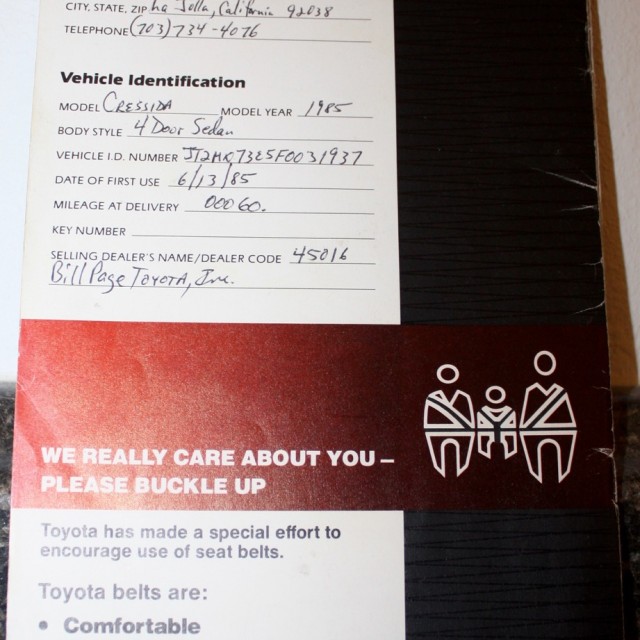 CITY, STATE, ZIP La Jolla, California 92038
TELEPHONE (703) 734-4076
Vehicle Identification
MODEL CRESSIDA MODEL YEAR 1985
BODY STYLE 4 Door Sedan
VEHICLE I.D. NUMBER JT2MX73E5F0031937
DATE OF FIRST USE 6/13/85
MILEAGE AT DELIVERY 00060.
KEY NUMBER
SELLING DEALER'S NAME/DEALER CODE 45016
Bill Page TOYOTA, Inc.
WE REALLY CARE ABOUT YOU –
PLEASE BUCKLE UP
Toyota has made a special effort to
encourage use of seat belts.
Toyota belts are:
• Comfortable